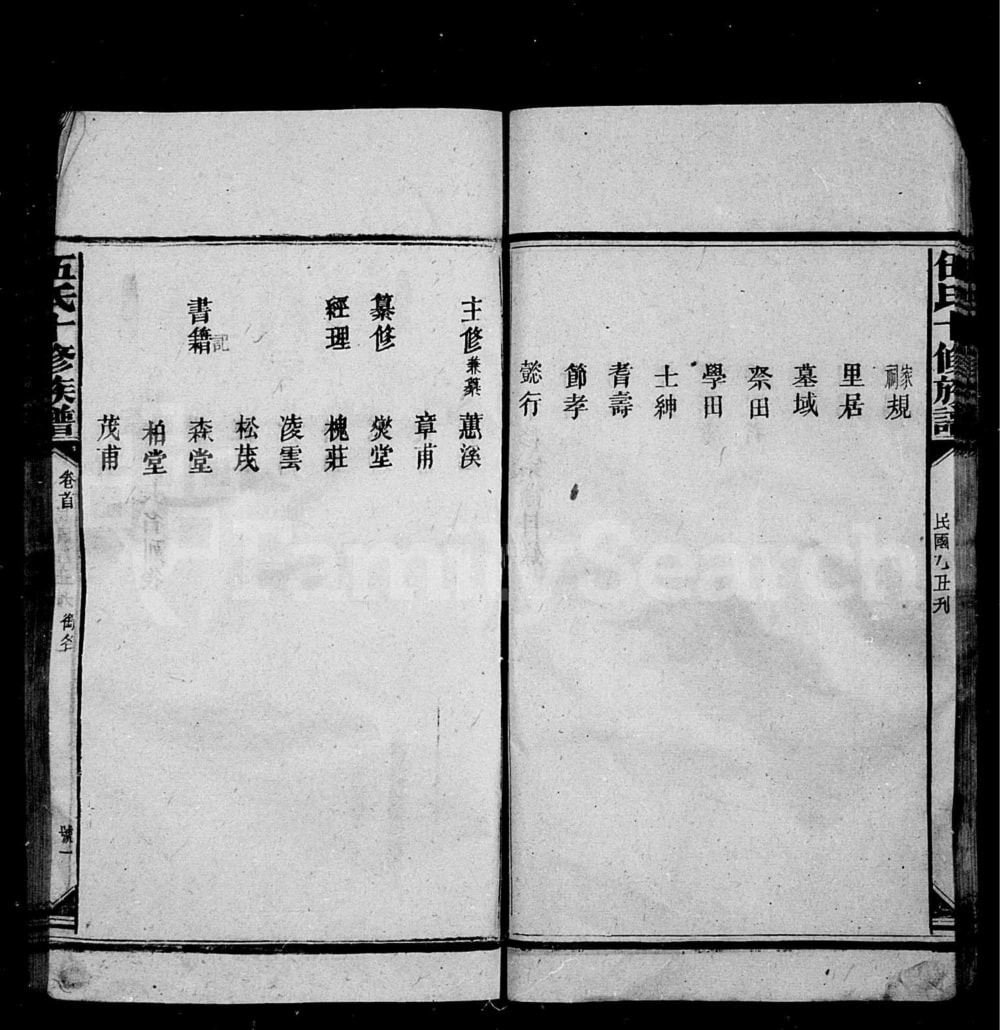 伍氏十修族譜
民國九丑刋
家祠規
里居
墓域
祭田
學田
士紳
耆壽
節孝
懿行
主修兼纂 蕙溪
章甫
纂修 燮堂
經理 槐莊
淩雲
松茂
書籍 森堂
記
柏堂
茂甫
伍氏十修族譜
卷首
銜名
號一
FamilySearch